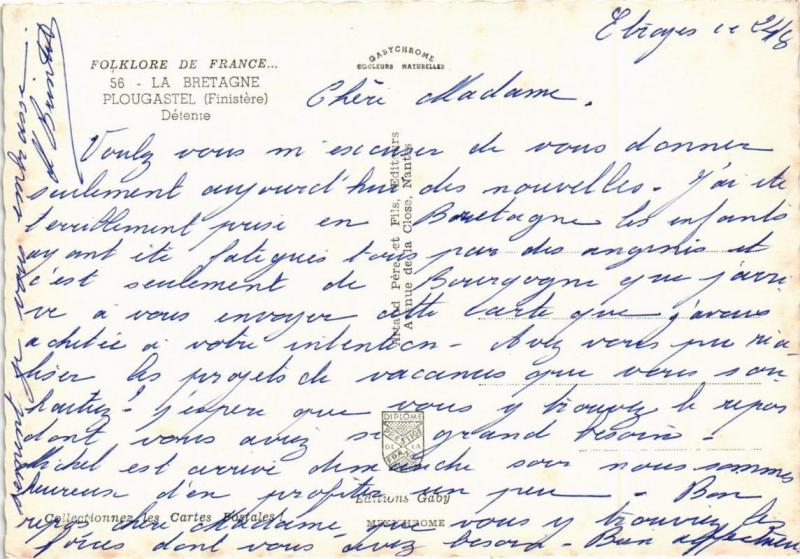 Etroyes ce 24/8
FOLKLORE DE FRANCE...
56 - LA BRETAGNE
PLOUGASTEL (Finistère)
Détente
GABYCHROME
COULEURS NATURELLES
Chère Madame,
Voulez vous m'excuser de vous donner
seulement aujourd'hui des nouvelles - J'ai été
terriblement prise en Bretagne les enfants
ayant été fatigués tous par des angines et
c'est seulement de Bourgogne que j'arri-
ve à vous envoyer cette carte que j'avais
achetée à votre intention - Avez vous pu réa-
liser les projets de vacances que vous sou-
haitiez? j'espère que vous y trouvez le repos
dont vous aviez si grand besoin -
Michel est arrivé dimanche soir nous sommes
heureux d'en profiter un peu - Bon
repos chère Madame, que vous y trouviez les
forces dont vous avez besoin - Bien affectueu
sement je vous embrasse
Artaud Père et Fils, Éditeurs
Avenue de la Close, Nantes
DIPLOME
PRESTIGE
DE LA
FRANCE
Editions Gaby
Collectionnez les Cartes Postales !
MEXICHROME